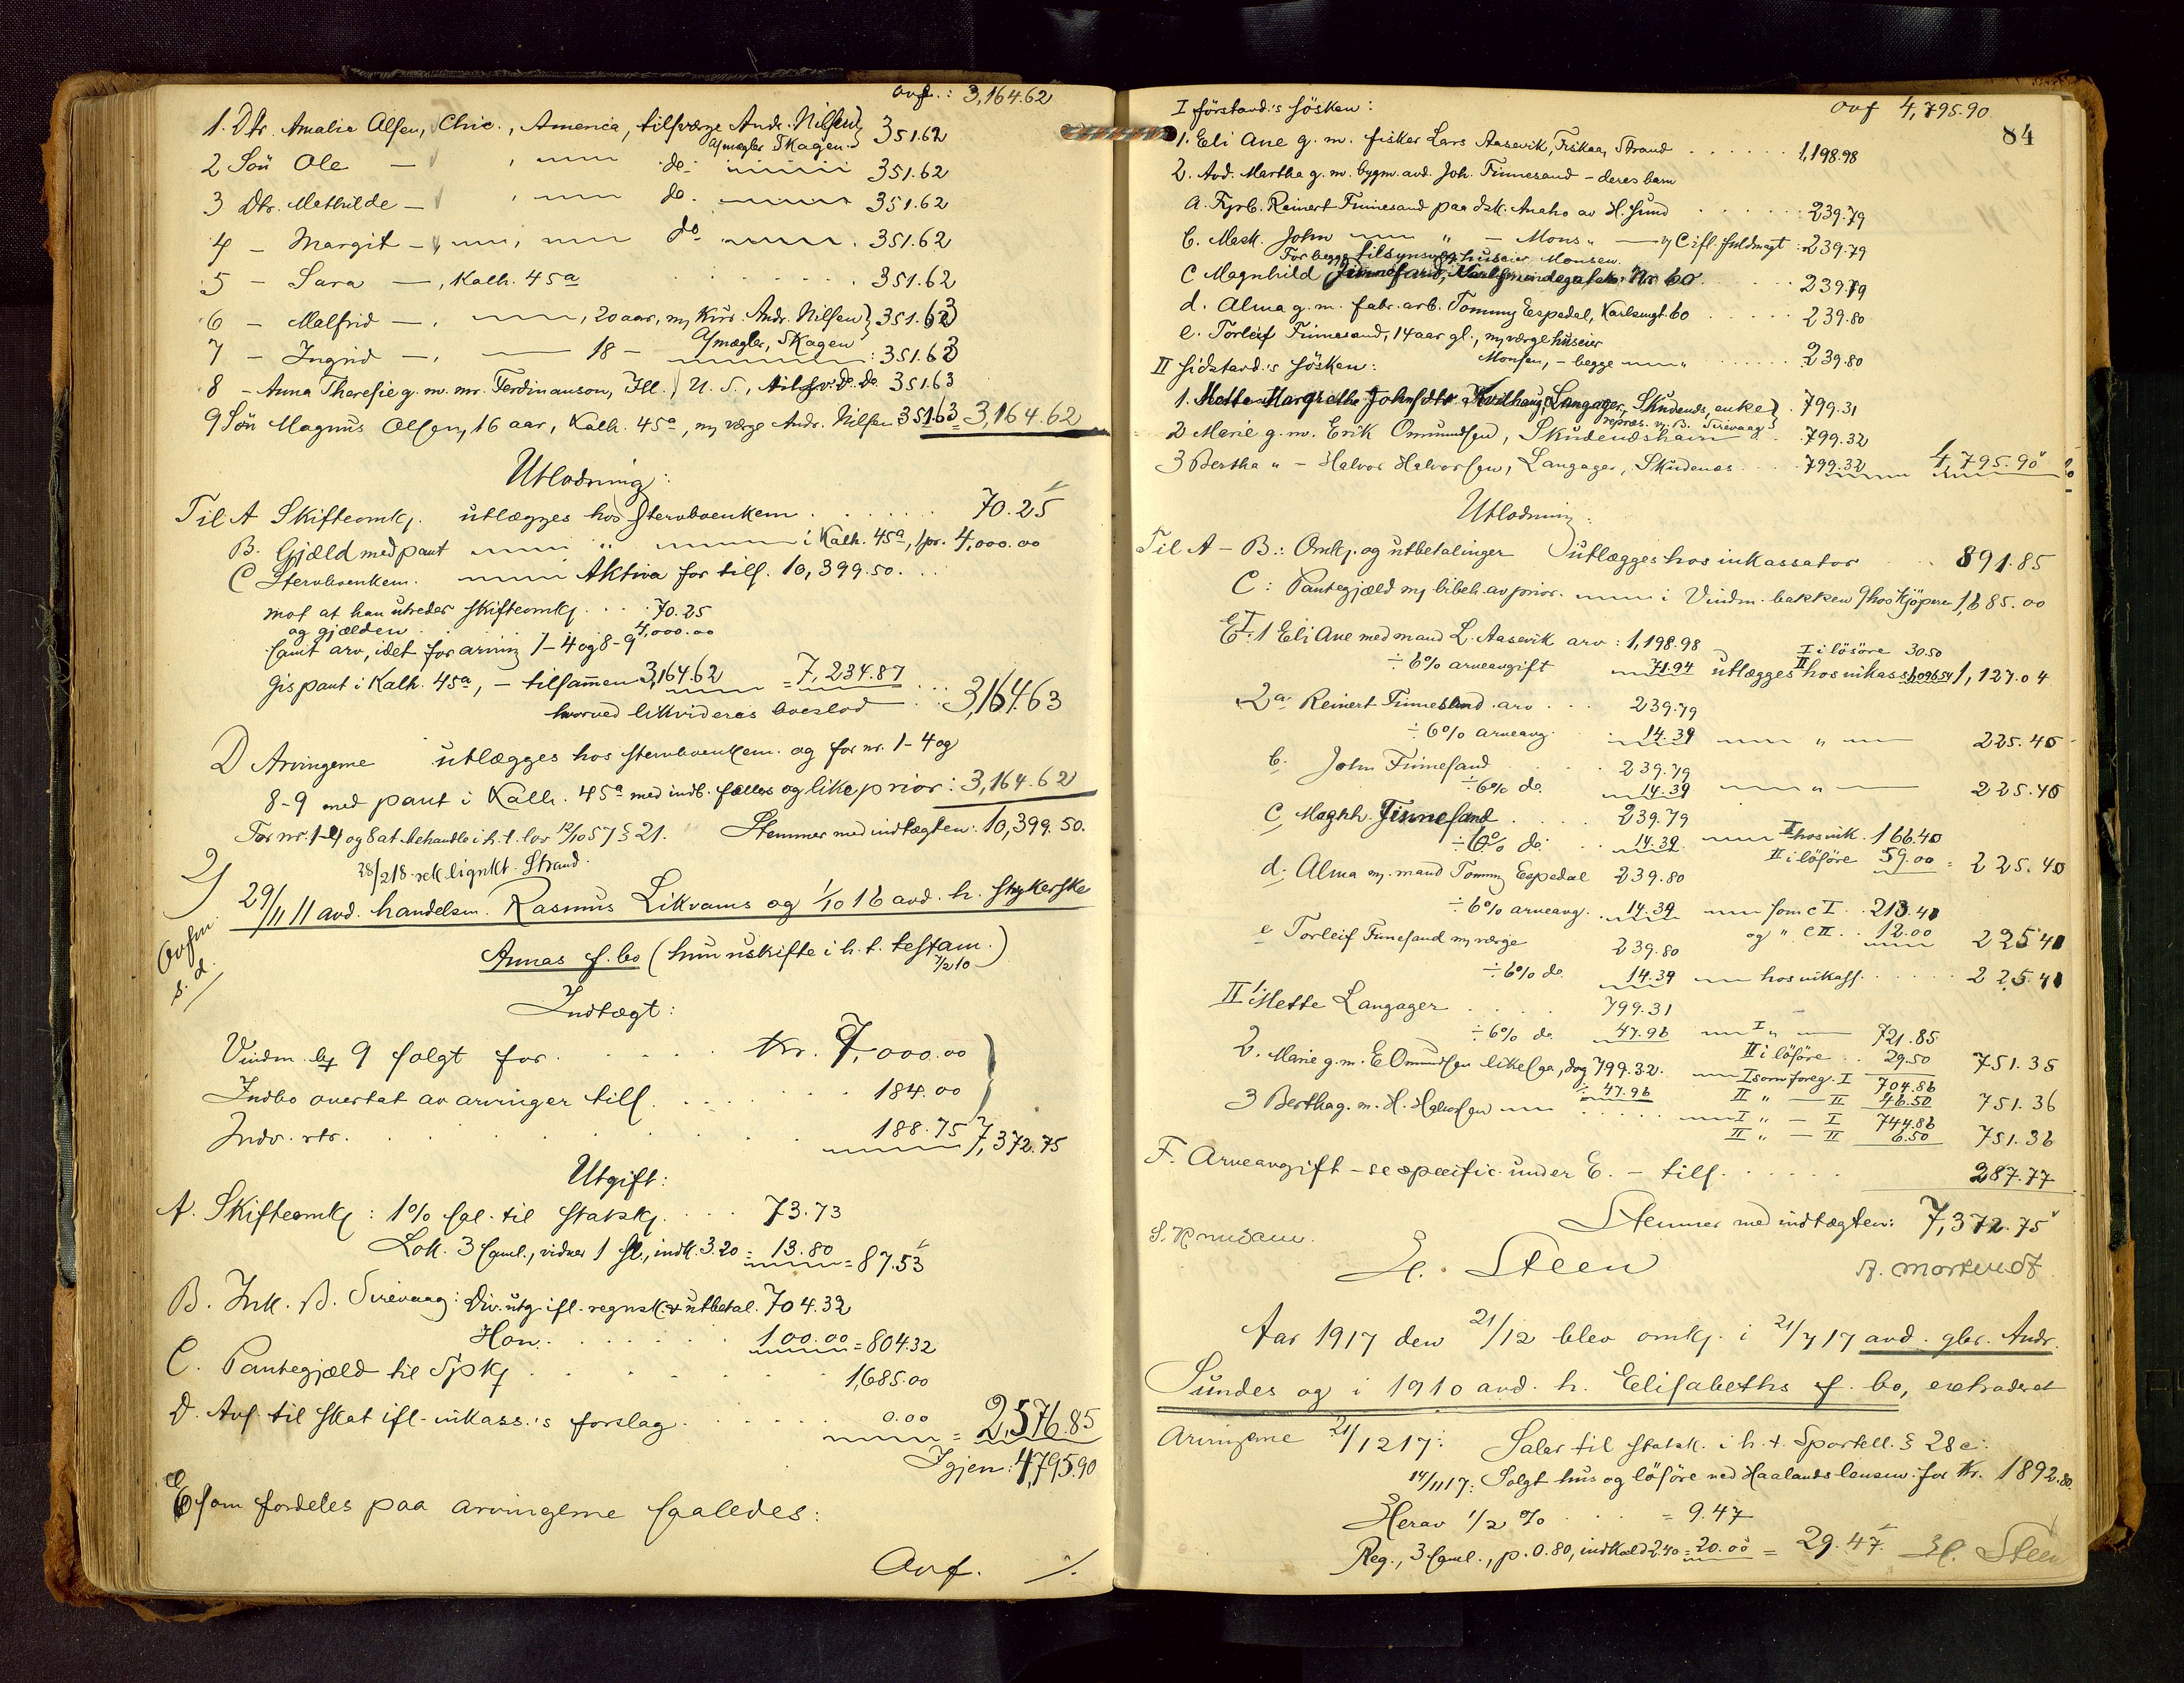 ovf.: 3,164.62
1. Dtr. Amalie Olsen, Chic., America, tilsværge Andr. Nilsen 351.62
Asmægler Skagen
2 Søn Ole — , do. 351.62
3 Dtr. Mathilde — , do. 351.62
4 — Margit — , do. 351.62
5 — Sara —, Kalh. 45a 351.62
6 — Malfrid —, 20 aar, m kur. Andr. Nilsen 351.63
7 — Ingrid —, 18 — Asmægler, Skagen : 351.63
8 — Anna Theresie g. m. mr. Ferdinanson, Ill., U. S., tilsv. do. do. 351.63
9 Søn Magnus Olsen, 16 aar, Kalh. 45a, m værge Andr. Nilsen 351.63 = 3,164.62
Utlodning:
Til A Skifteomk. utlægges hos stervboenkem. 70.25
B. Gjæld med pant " i Kalh. 45a, 1 pr. 4,000.00
C Stervboenkem. Aktiva for till. 10,399.50.
mot at han utreder skifteomk. 70.25
og gjælden 4,000.00
samt arv, idet for arving 1-4 og 8-9
gis pant i Kalh. 45a, — tilsammen 3,164.62 = 7,234.87
hvorved likvideres boeslod 3,164.63
D Arvingerne utlægges hos stervboenkem. og for nr. 1-4 og
8-9 med pant i Kalh. 45a med indb. fælles og like prior: 3,164.62
For nr. 1-4 og 8 at behandle i h. t. lov 12/10 57 § 21. Stemmer med indtægten: 10,399.50.
28/2 18 rek. lignkt. Strand.
2) 29/11 11 avd. handelsm. Rasmus Likvams og 1/10 16 avd. h. strykerske
Annas f. bo (hun uskifte i h. t. testam. 7/2 10)
Ovfm s. d.
Indtægt:
Vindm. bk 9 solgt for kr. 7,000.00
Indbo overtat av arvinger till. 184.00
Indv. rtr. 188.75 7,372.75
Utgift:
A. Skifteomk: 1% sal. til statsk. 73.73
Lok. 3 saml., vidner 1 , indk. 3.20 = 13.80 = 87.53
B. Ink. B. Sirevaag: Div. utg. ifl. regnsk. & utbetal. 704.32
Hon. 100.00 = 804.32
C. Pantegjæld til Spk 1,685.00
D. Avs. til skat ifl. inkass.'s forslag 0.00 = 2,576.85
Igjen: 4,795.90
E som fordeles paa arvingerne saaledes:
Ovf. ./.
ovf 4,795.90
84
I førstavd.'s søsken:
1. Eli Ane g. m. fisker Lars Aasevik, Fiskaa, Strand 1,198.98
2. Avd. Martha g. m. bygm. avd. Joh. Finnesand — deres barn
a. Fyrb. Reinert Finnesand paa dsk. Anaho av H. Sund 239.79
b. Mask. John " — Mons " — ifl. fuldmagt : 239.79
For begge tilsynsverg huseier Monsen.
c Magnhild Finnesand, Karlsmindegaten Nr 60 239.79
d. Alma g. m. fabr. arb. Tommy Espedal, Karlsmgt. 60 239.80
e. Torleif Finnesand, 14 aar gl., m værge huseier
Monsen, — begge 239.80
II sidstavd.'s søsken:
1. Mette Margrethe Johnsdtr Kvilhaug, Langager, Skudenes, enke 799.31
repræs. v. B. Sirevaag
2 Marie g. m. Erik Omundsen, Skudeneshavn 799.32
3 Bertha " — Halvor Halvorsen, Langager, Skudenes 799.32 4,795.90
Utlodning:
Til A — B.: Omk. og utbetalinger utlægges hos inkassator 891.85
C: Pantegjæld m bibeh. av prior. i Vindm. bakken 9 hos kjøperen 1,685.00
E I. 1 Eli Ane med mand L. Aasevik arv: 1,198.98 I i løsøre 30.50
÷ 6% arveavgift 71.94 utlægges II hos inkass. 1,096.54 1,127.04
2a. Reinert Finnesand arv 239.79
÷ 6% arveavg. 14.39 " 225.40
b. John Finnesand 239.79
÷ 6% do. 14.39 " 225.40
c Magnh. Finnesand 239.79
÷ 6% do. 14.39 I hos ink. 166.40
II i løsøre 59.00 = 225.40
d. Alma m. mand Tommy Espedal 239.80
÷ 6% arveavg. 14.39 som c I 213.41
og " c II 12.00 225.41
e Torleif Finnesand m værge 239.80
÷ 6% do. 14.39 hos inkass. 225.41
II 1. Mette Langager 799.31
÷ 6% do. 47.96 I " 721.85
II i løsøre 29.50 751.35
2. Marie g. m. E Omundsen likesaa, dog 799.32. I som foreg. I 704.86
÷ 47.96 II " — II 46.50 751.36
3 Bertha g. m. H. Halvorsen I " — I 744.86
II " — II 6.50 751.36
F. Arveavgift — se specific. under E. — till. 287.77
Stemmer med indtægten: 7,372.75
S. Knudsen.
H. Steen
Aar 1917 den 21/12 blev omk. i 21/7 17 avd. gbr. Andr.
Sundes og i 1910 avd. h. Elisabeths f. bo, extraderet
Arvingerne 21/12 17: Salær til statsk. i h. t. Sportell. § 28 c:
14/11 17: Solgt hus og løsøre ved Haalandslensm. for kr. 1892.80.
Herav 1/2 % = 9.47
Reg., 3 saml., p. 0.80, indkald 2.40 = 20.00 = 29.47. H. Steen